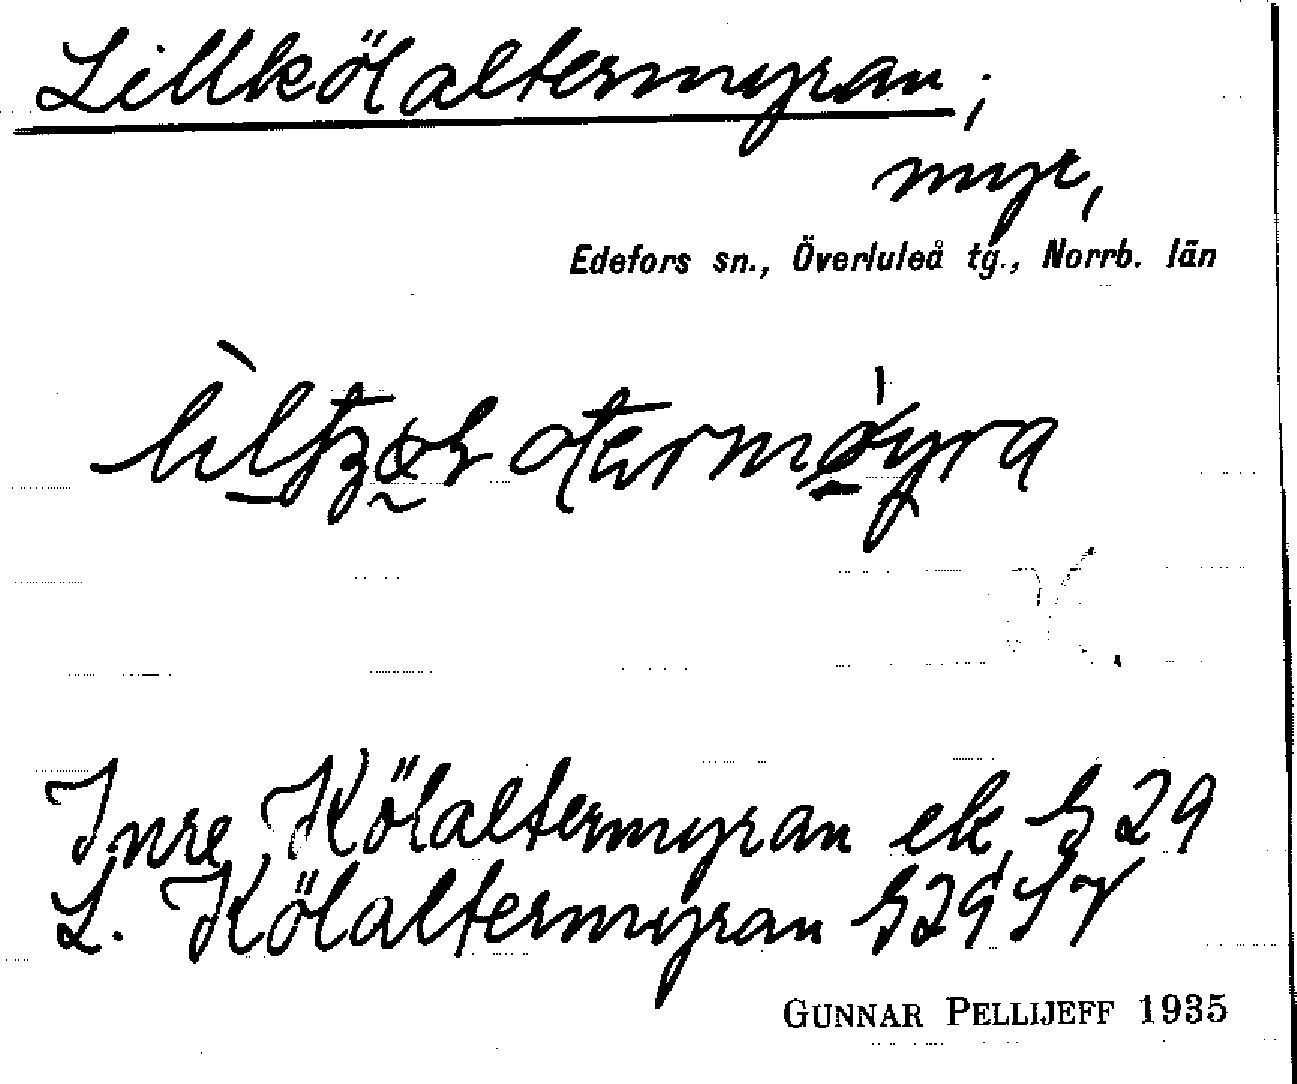 Lillkölaltermyran,
myr,
Edefors sn., Överluleå tg., Norrb. län
Inre Kölaltermyran ek, h 29
L. Kölaltermyran h 29 SV
GUNNAR PELLIJEFF 1935